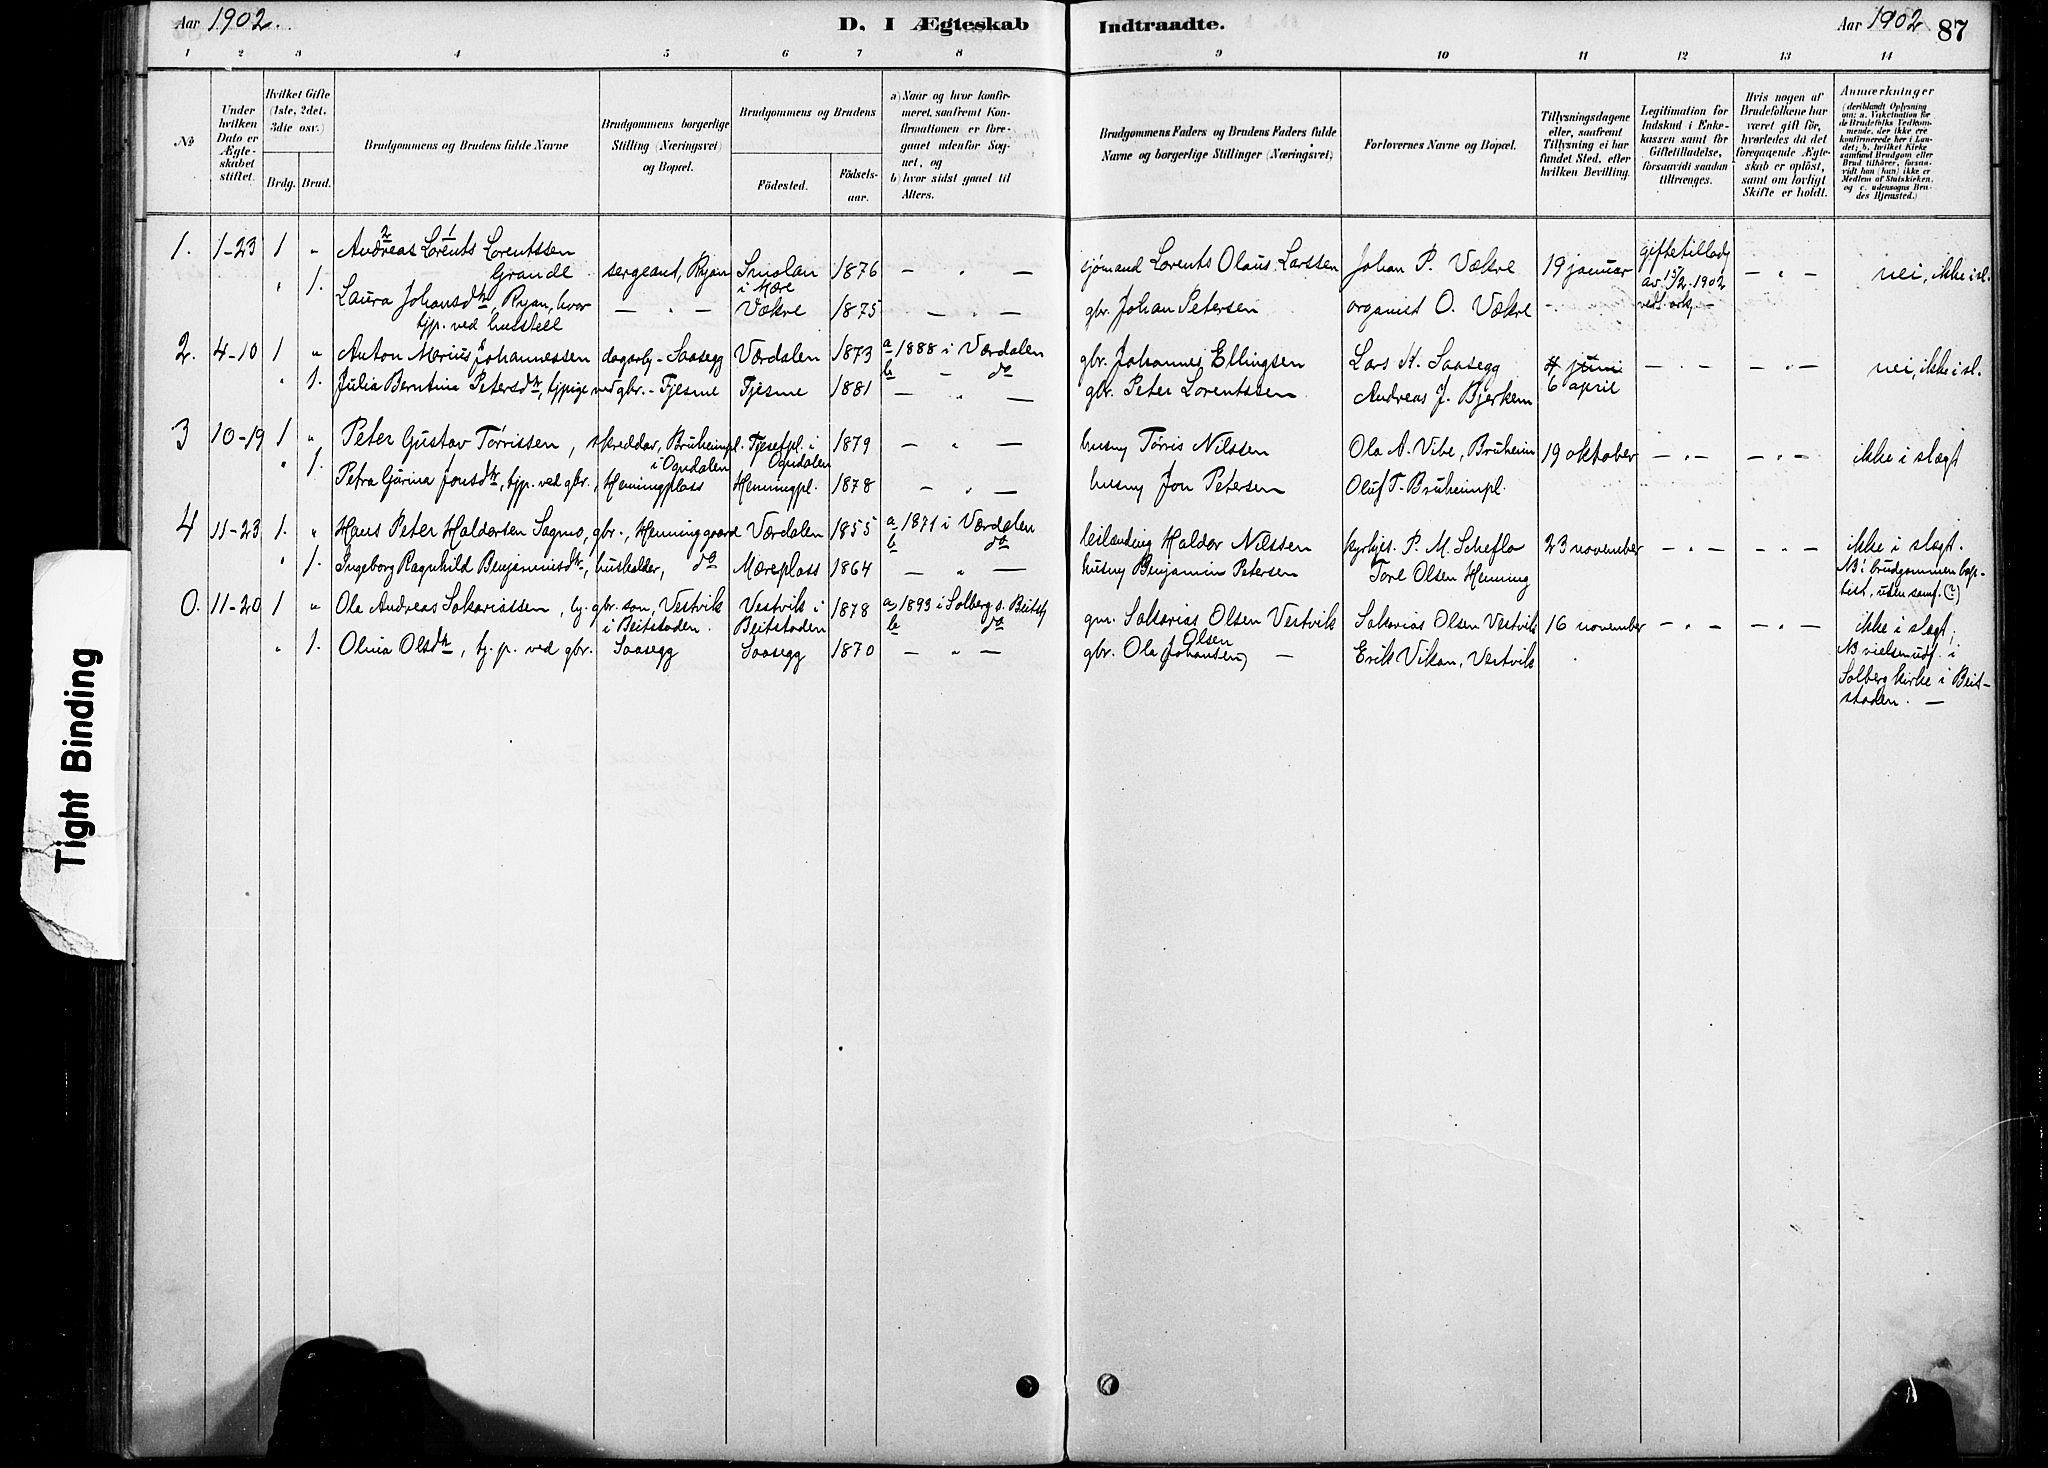 Aar 1902.
D. I Ægteskab Indtraadte.
Aar 1902
87
1 2 3 4 5 6 7 8 9 10 11 12 13 14
No
Under hvilken Dato er Ægteskabet stiftet.
Hvilket Gifte (1ste, 2det, 3die osv.)
Brdg. Brud.
Brudgommens og Brudens fulde Navne
Brudgommens borgerlige Stilling (Næringsvei) og Bopæl.
Brudgommens og Brudens
Födested.
Födselsaar.
a) Naar og hvor konfirmeret, saafremt Konfirmationen er foregaaet udenför Sognet, og
b) hvor sidst gaaet til Alters.
Brudgommens Faders og Brudens Faders fulde Navne og borgerlige Stillinger (Næringsvei)
Forlovernes Navne og Bopæl.
Tillysningsdagene eller, saafremt Tillysning ei har fundet Sted, efter hvilken Bevilling.
Legitimation for Indskud i Enkekassen samt for Giftetilladelse, forsaavidt saadan tiltrænges.
Hvis nogen af Brudefolkene har været gift för, hvorledes da det foregaaende Ægteskab er oplöst, samt om lovligt Skifte er holdt.
Anmærkninger (deriblandt Oplysning om: a. Vakcination for de Brudefolks Vedkommende, der ikke ere konfirmerede her i Landet; b. hvilket Kirkesamfund Brudgom eller Brud tilhörer, forsaavidt han (hun) ikke er Medlem af Statskirken, og c. udensogns Brudes Hjemsted.)
1. 1-23 1 " Andreas Lorents Lorentssen Grande sergeant, Ryan Smolan i Møre 1876 — " — sjömand Lorents Olaus Larssen Johan P. Vækre 19 januar giftetillad. av 15/2 1902 vedl. ark. — " — nei, ikke i sl.
" 1. Laura Johansdtr, Ryan, hvor tjp. ved husstell — " — Vækre 1875 — " — gbr. Johan Petersen organist O. Vækre —
2. 4-10 1 " Anton Marius Johannessen dagarb. - Saasegg Værdalen 1873 a 1888 i Værdalen b — do gbr. Johannes Ellingsen Lars H. Saasegg 4 juni 6 april — " — — " — nei, ikke i sl.
" 1. Julia Berntina Petersdtr, tjpige ved gbr. - Fjesme Fjesme 1881 — " — gbr. Peter Lorentssen Andreas J. Bjerkem
3 10-19 1 " Peter Gustav Törrissen, skreddar, Bruheimpl. i Ogndalen Tjesefpl. i Ogndalen 1879 — " — husm Törris Nilssen Ola A. Vibe, Bruheim 19 oktober — " — — " — ikke i slægt
" 1. Petra Gurina Jonsdtr, tjp. ved gbr., Henningplass Henningpl. 1878 — " — husm Jon Petersen Oluf T. Bruheimpl.
4 11-23 1. " Hans Peter Haldorsen Sagmo, gbr., Henninggaard Værdalen 1855 a 1871 i Værdalen b do leilænding Haldor Nilssen kyrkjes. P. M. Scheflo 23 november — " — — " — ikke i slægt.
" 1. Ingeborg Ragnhild Benjaminsdtr, husholder, do Mæreplass 1864 — " — husm Benjamin Petersen Tore Olsen Henning NB! brudgommen baptist, uten samf. (?)
0. 11-20 1 " Ola Andreas Sakariassen, tj. gbr. son, Vestvik i Beitstaden. Vestvik i Beitstaden 1878 a 1893 i Solberg s. Beitst b do gm. Sakarias Olsen Vestvik Sakarias Olsen Vestvik 16 november — " — — " — ikke i slægt;
" 1. Olina Olsdtr, tj. p. ved gbr. Saasegg Saasegg 1870 — " — gbr. Ola Olsen (Johansen) — Erik Vikan, Vestvik NB vielsen udf. i Solberg kirke i Beitstaden. —
Tight Binding